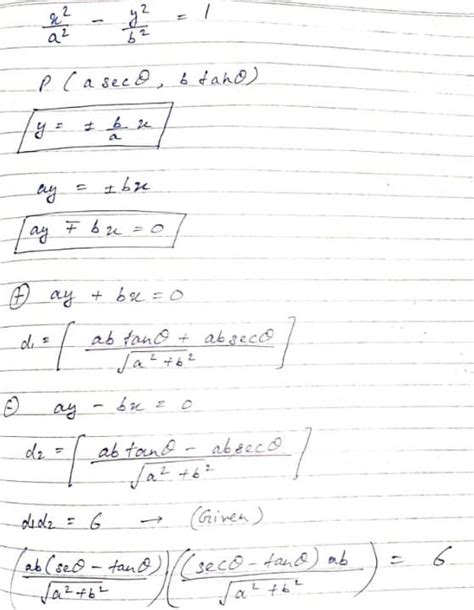 x²/a² - y²/b² = 1
P (a secθ, b tanθ)
y = ± b/a x
ay = ±bx
ay ∓ bx = 0
(+) ay + bx = 0
d₁ = [ (ab tanθ + ab secθ) / √(a² + b²) ]
(-) ay - bx = 0
d₂ = [ (ab tanθ - ab secθ) / √(a² + b²) ]
d₁d₂ = 6 → (Given)
(ab(seθ - tanθ) / √(a² + b²)) ((secθ - tanθ) ab / √(a² + b²)) = 6